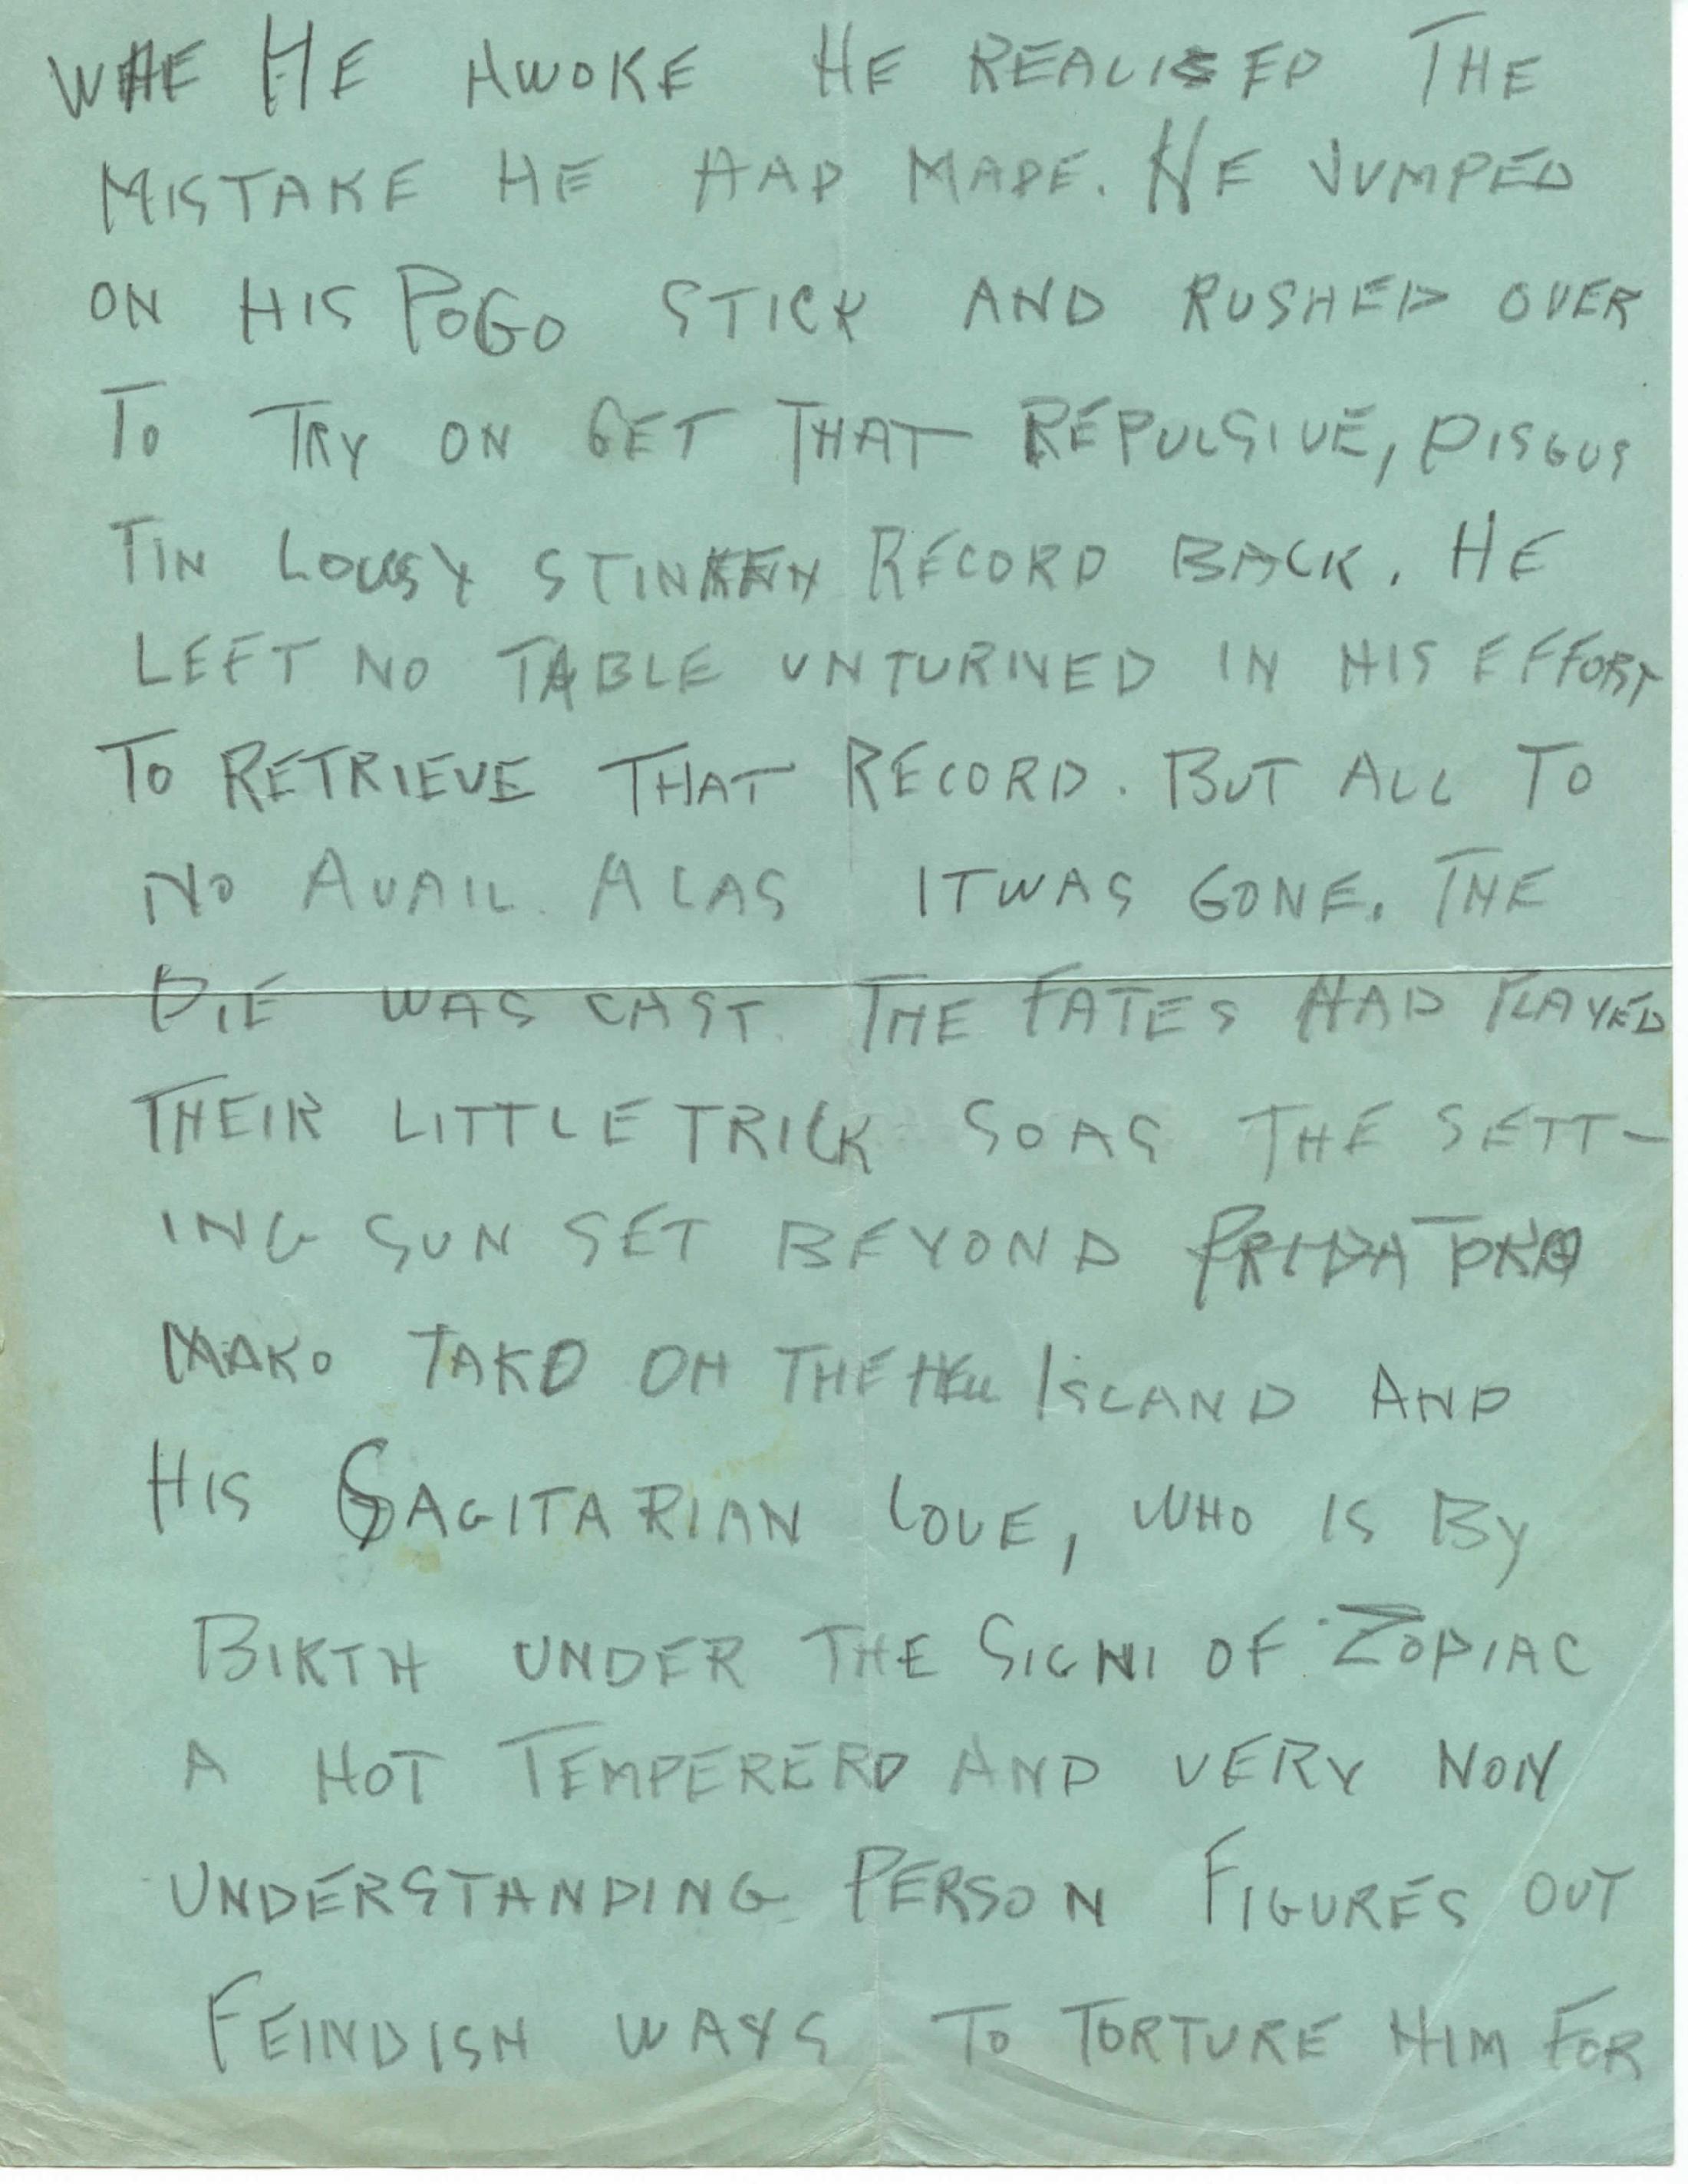 WHE HE AWOKE HE REALISED THE
MISTAKE HE HAD MADE. HE JUMPED
ON HIS POGO STICK AND RUSHED OVER
TO TRY ON GET THAT REPULSIVE, DISGUS
TIN LOUSY STINKEN RECORD BACK. HE
LEFT NO TABLE UNTURNED IN HIS EFFORT
TO RETRIEVE THAT RECORD. BUT ALL TO
NO AVAIL. ALAS ITWAS GONE. THE
DIE WAS CAST. THE FATES HAD PLAYED
THEIR LITTLE TRICK SOAS THE SETT-
ING SUN SET BEYOND
MAKO TAKO ON THE ISLAND AND
HIS SAGITARIAN LOVE, WHO IS BY
BIRTH UNDER THE SIGN OF ZODIAC
A HOT TEMPERERD AND VERY NON
UNDERSTANDING PERSON FIGURES OUT
FEINDISH WAYS TO TORTURE HIM FOR